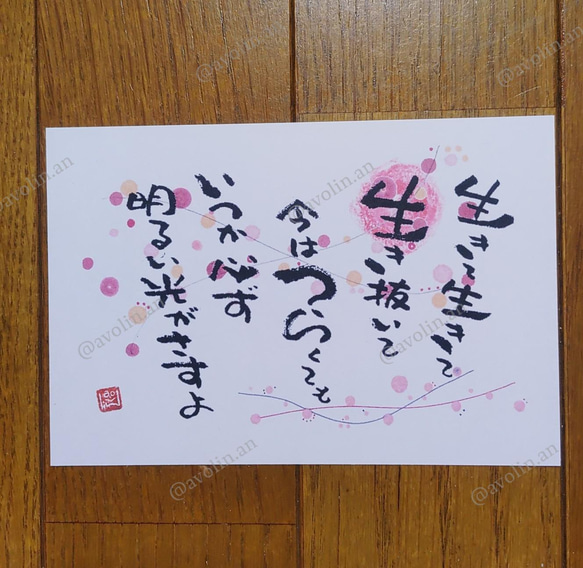 生きて生きて
生き抜いて
今はつらくても
いつか必ず
明るい光がさすよ
@avolin.an
@avolin.an
@avolin.an
@avolin.an
@avolin.an
@avolin.an
@avolin.an
@avolin.an